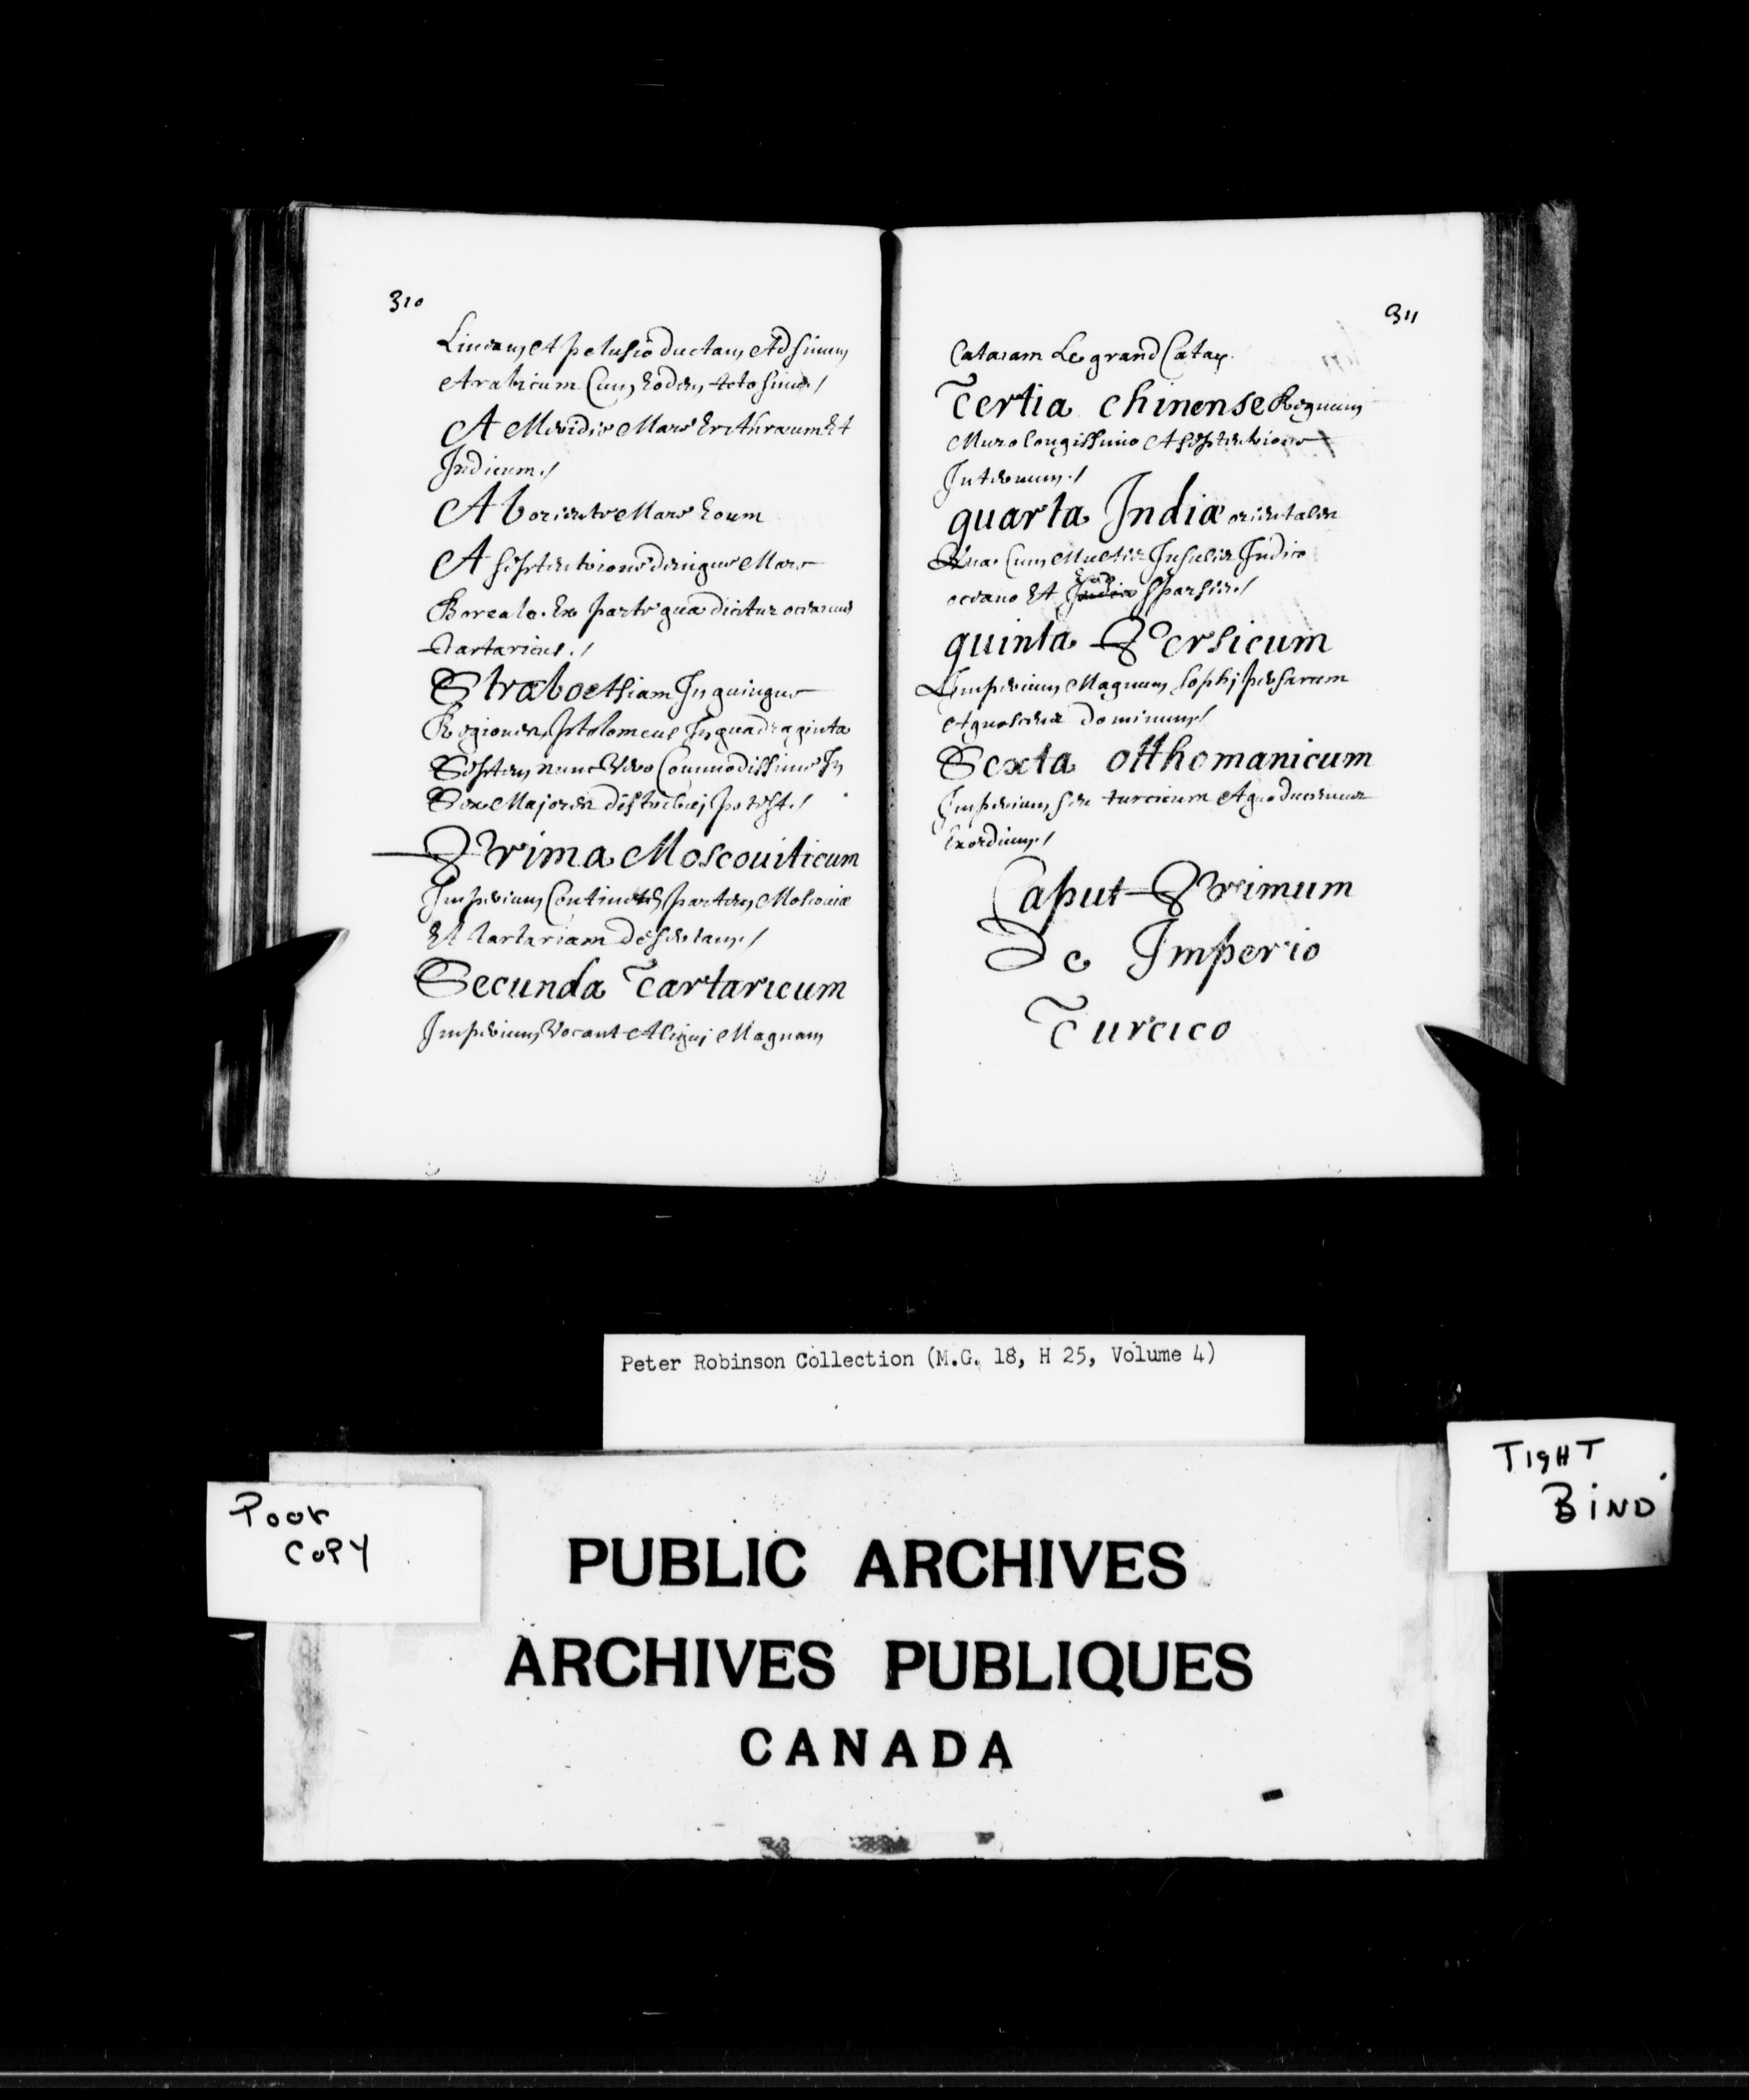 310
Lineam et pelusio ductam Ad sinum
Arabicum Cum Eodem toto sinu./
A Meridie Mare Erithræum Et
Indicum./
Ab oriente Mare Eoum
A septentrione denique Mare
Boreale. Ex parte qua dicitur oceanus
Tartaricus./
Strabo Asiam In quinque
Regiones, ptolomeus In quadraginta
Septem nunc Vero Commodissime In
Sex Majores distribuj potest./
Prima Moscouiticum
Imperium Continens partem Moscouiæ
Et tartariam desertam./
Secunda Tartaricum
Imperium Vocant Aliquj Magnam
311
Cataiam Le grand Catay.
Tertia chinense Regnum
Muro longissimo A septentrione
quarta Indiæ orientales
Una Cum Multis Insulis Indico
oceano Et Eoo sparsis./
quinta Persicum
Imperium Magnum sophj persarum
Agnoscens dominum/
Sexta otthomanicum
Imperium seu turcicum A quo ducemus
Exordium/
Caput Primum
De Imperio
Turcico
Peter Robinson Collection (M.G. 18, H 25, Volume 4)
Poor
Copy
TIgHT
BiND
PUBLIC ARCHIVES
ARCHIVES PUBLIQUES
CANADA